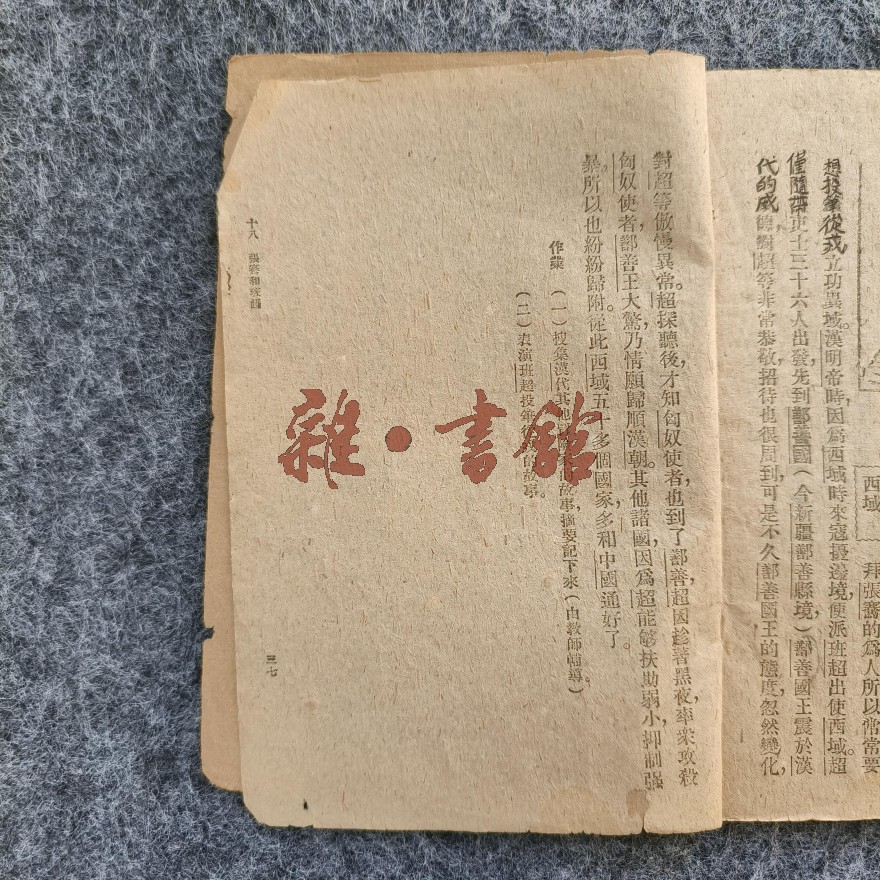 西域
拜張騫的爲人所以常常要
想投筆從戎立功異域。漢明帝時,因爲西域時來寇擾邊境,便派班超出使西域。超
僅隨帶吏士三十六人出發,先到鄯善國(今新疆鄯善縣境)鄯善國王震於漢
代的威德,對超等非常恭敬,招待也很周到,可是不久鄯善國王的態度忽然變化,
對超等傲慢異常。超探聽後,才知匈奴使者,也到了鄯善,超因趁著黑夜,率衆攻殺
匈奴使者,鄯善王大驚,乃情願歸順漢朝。其他諸國,因爲超能够扶助弱小,抑制强
暴,所以也紛紛歸附。從此西域五十多個國家,多和中國通好了。
作業
(一)搜集漢代其他故事,摘要記下來(由教師輔導)。
(二)表演班超投筆從戎的故事。
十八 張騫和班超
三七
雜·書館